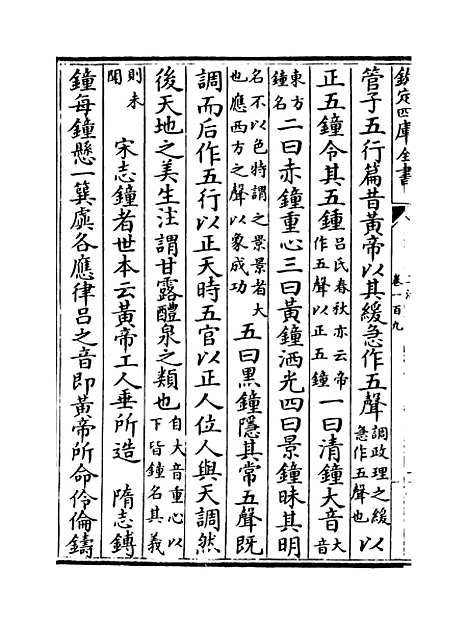 欽定四庫全書
卷一百九
管子五行篇昔黃帝以其緩急作五聲調政理之緩急作五聲也以
正五鐘令其五鍾呂氏春秋亦云帝作五聲以正五鐘一曰清鐘大音大音
東方鐘名二曰赤鐘重心三曰黃鐘洒光四曰景鐘昧其明
名不以色特謂之景景者大也應西方之聲以象成功五曰黑鐘隱其常五聲既
調而后作五行以正天時五官以正人位人與天調然
後天地之美生注謂甘露醴泉之類也自大音重心以下皆鐘名其義
則未聞 宋志鐘者世本云黃帝工人垂所造 隋志鎛
鐘每鐘懸一簨虡各應律呂之音即黃帝所命伶倫鑄